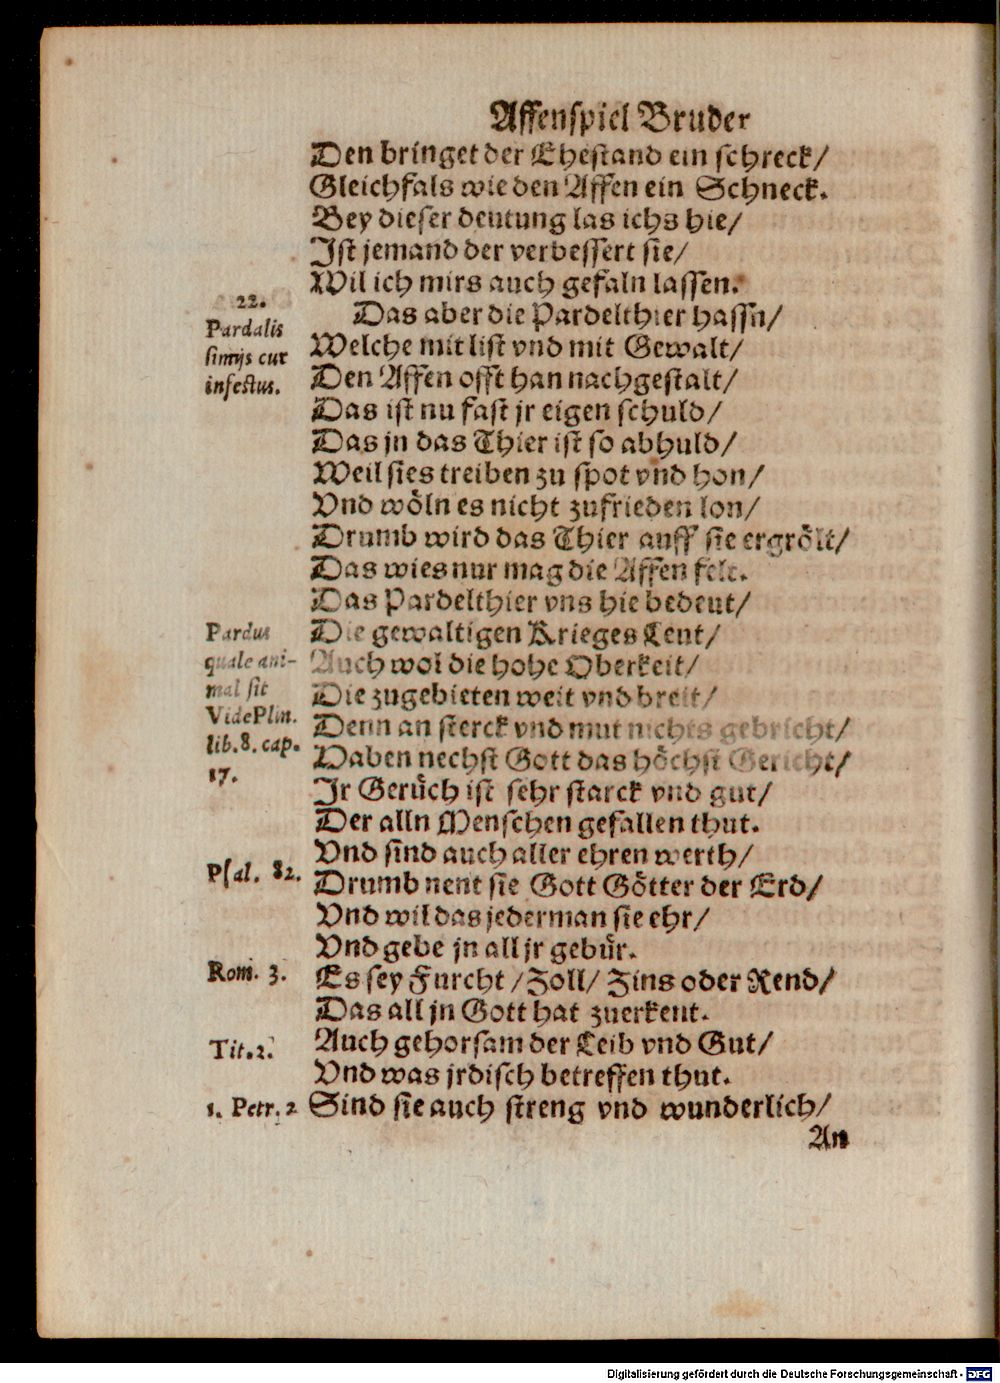 Affenſpiel Bruder
Den bringet der Eheſtand ein ſchreck/
Gleichfals wie den Affen ein Schneck.
Bey dieſer deutung las ichs hie/
Iſt jemand der verbeſſert ſie/
Wil ich mirs auch gefaln laſſen.
22.
Pardalis
ſimijs cur
infeſtus.
Das aber die Pardelthier haſſn/
Welche mit liſt vnd mit Gewalt/
Den Affen offt han nachgeſtalt/
Das iſt nu faſt jr eigen ſchuld/
Das jn das Thier iſt ſo abhuld/
Weil ſies treiben zu ſpot vnd hon/
Vnd wöln es nicht zufrieden lon/
Drumb wird das Thier auff ſie ergrölt/
Das wies nur mag die Affen felt.
Das Pardelthier vns hie bedeut/
Pardus
quale ani-
mal ſit
Vide Plin.
lib. 8. cap.
17.
Die gewaltigen Krieges Leut/
Auch wol die hohe Oberkeit/
Die zugebieten weit vnd breit/
Denn an ſterck vnd mut nichts gebricht/
Haben nechſt Gott das höchſt Gericht/
Ir Gerüch iſt ſehr ſtarck vnd gut/
Der alln Menſchen gefallen thut.
Vnd ſind auch aller ehren werth/
Pſal. 82.
Drumb nent ſie Gott Götter der Erd/
Vnd wil das jederman ſie ehr/
Vnd gebe jn all jr gebür.
Rom. 3.
Es ſey Furcht/ Zoll/ Zins oder Rend/
Das all jn Gott hat zuerkent.
Tit. 2.
Auch gehorſam der Leib vnd Gut/
Vnd was jrdiſch betreffen thut.
1. Petr. 2
Sind ſie auch ſtreng vnd wunderlich/
An
Digitalisierung gefördert durch die Deutsche Forschungsgemeinschaft - DFG